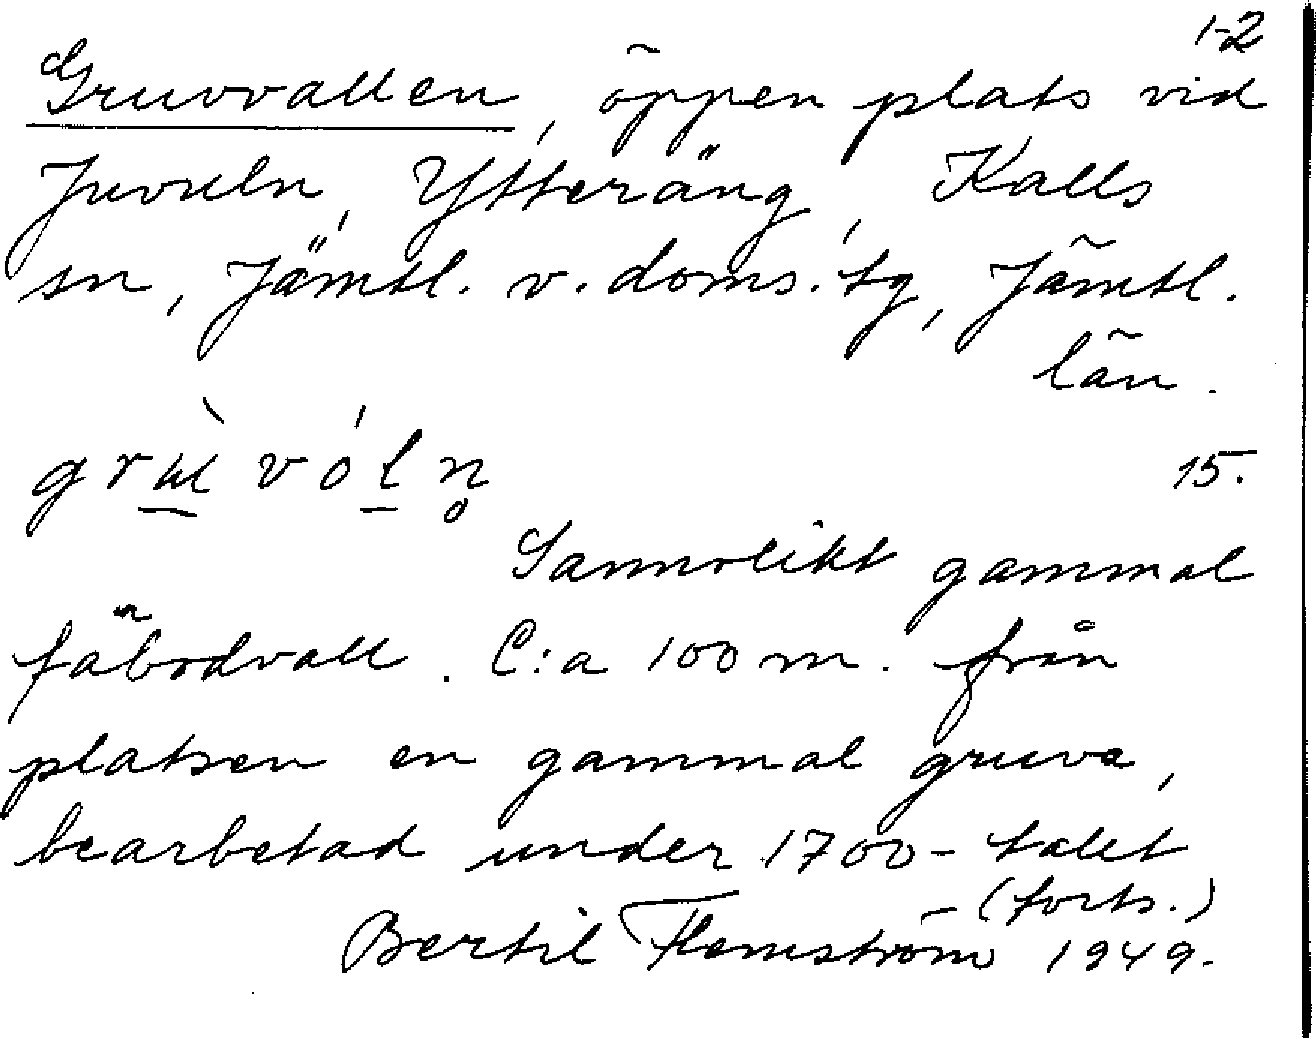 1-2
Gruvvallen, öppen plats vid
Juveln, Ytteräng, Kalls
sn, Jämtl. v. doms. tg, Jämtl.
län.
15.
Sannolikt gammal
fäbodvall. C:a 100 m. från
platsen en gammal gruva,
bearbetad under 1700-talet
(forts.)
Bertil Flemström 1949.